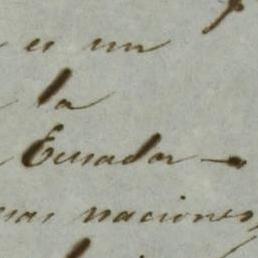 es un
la
Ecuador —
naciones